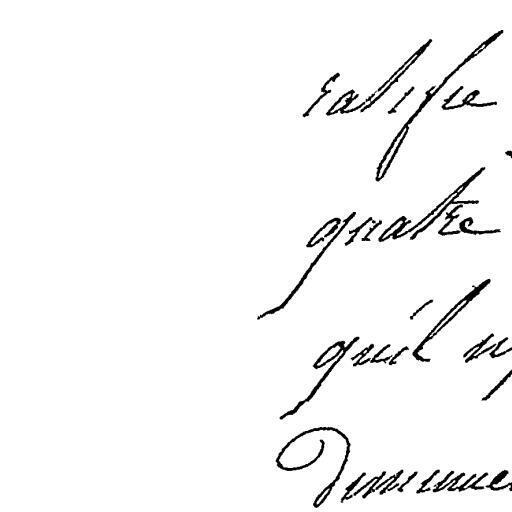 ratifie
quatre
qu'il n'y
Diminuer